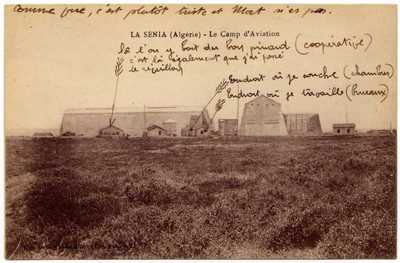 comme vue, c'est plutôt triste et Mat n'es pas.
LA SENIA (Algérie) - Le Camp d'Aviation
là l'on y boit du bon pinard (coopérative)
c'est là également que j'ai passé
le réveillon
Endroit où je couche (chambre)
Endroit où je travaille (Bureaux)